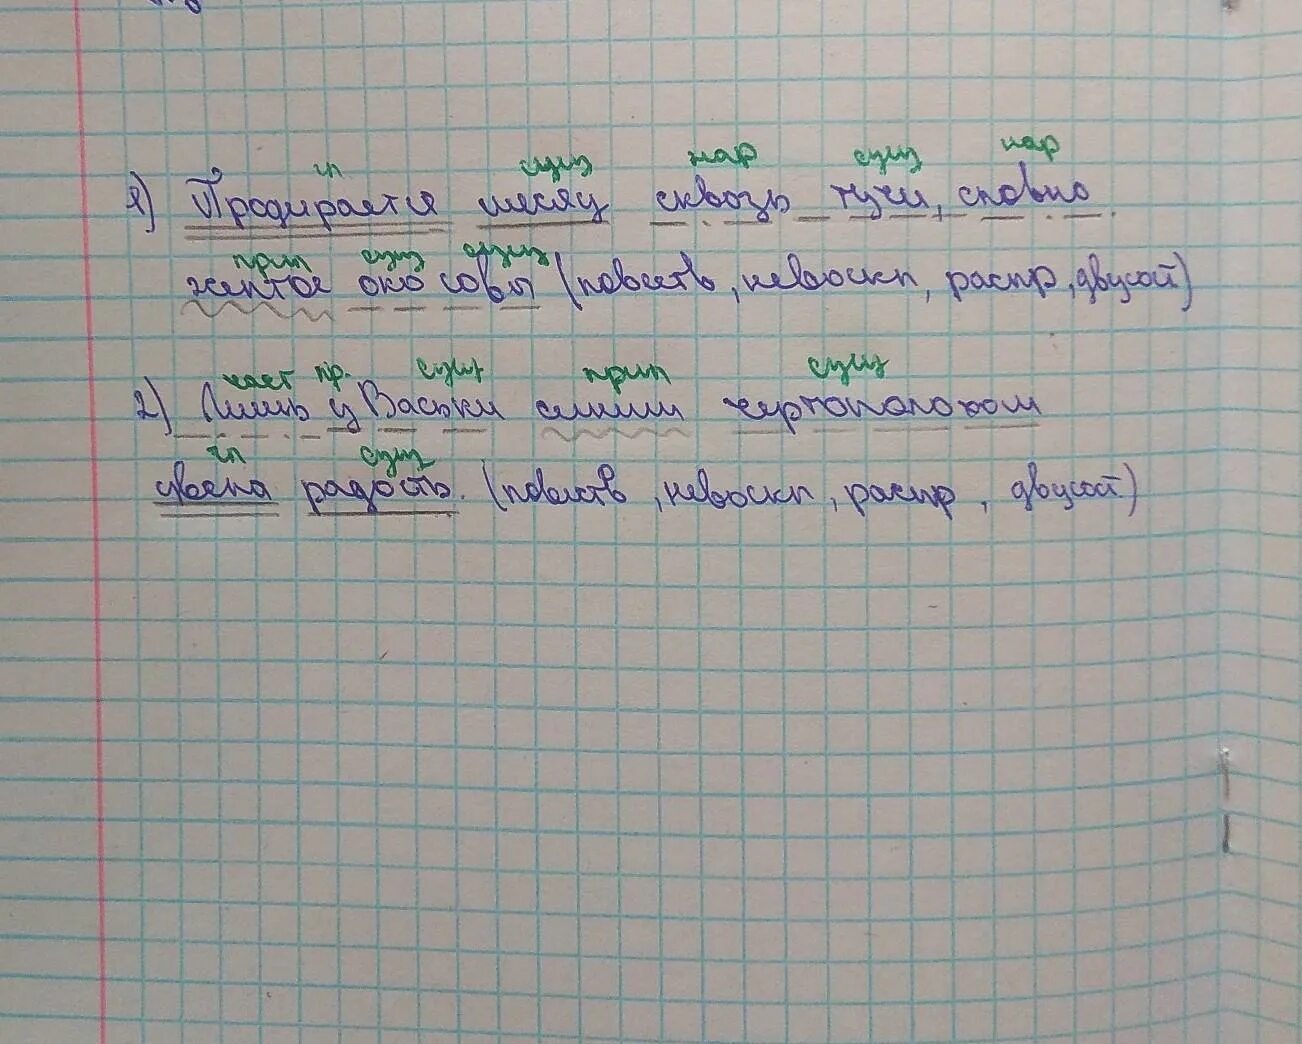 гл сущ нар сущ нар
1) Продирается месяц сквозь тучи, словно
прил сущ сущ
желтое око совы (повеств, невоскл, распр, двусост)
част пр. сущ прил сущ
2) Лишь у Васьки синим чертополохом
гл сущ
цвела радость. (повеств, невоскл, распр, двусост)